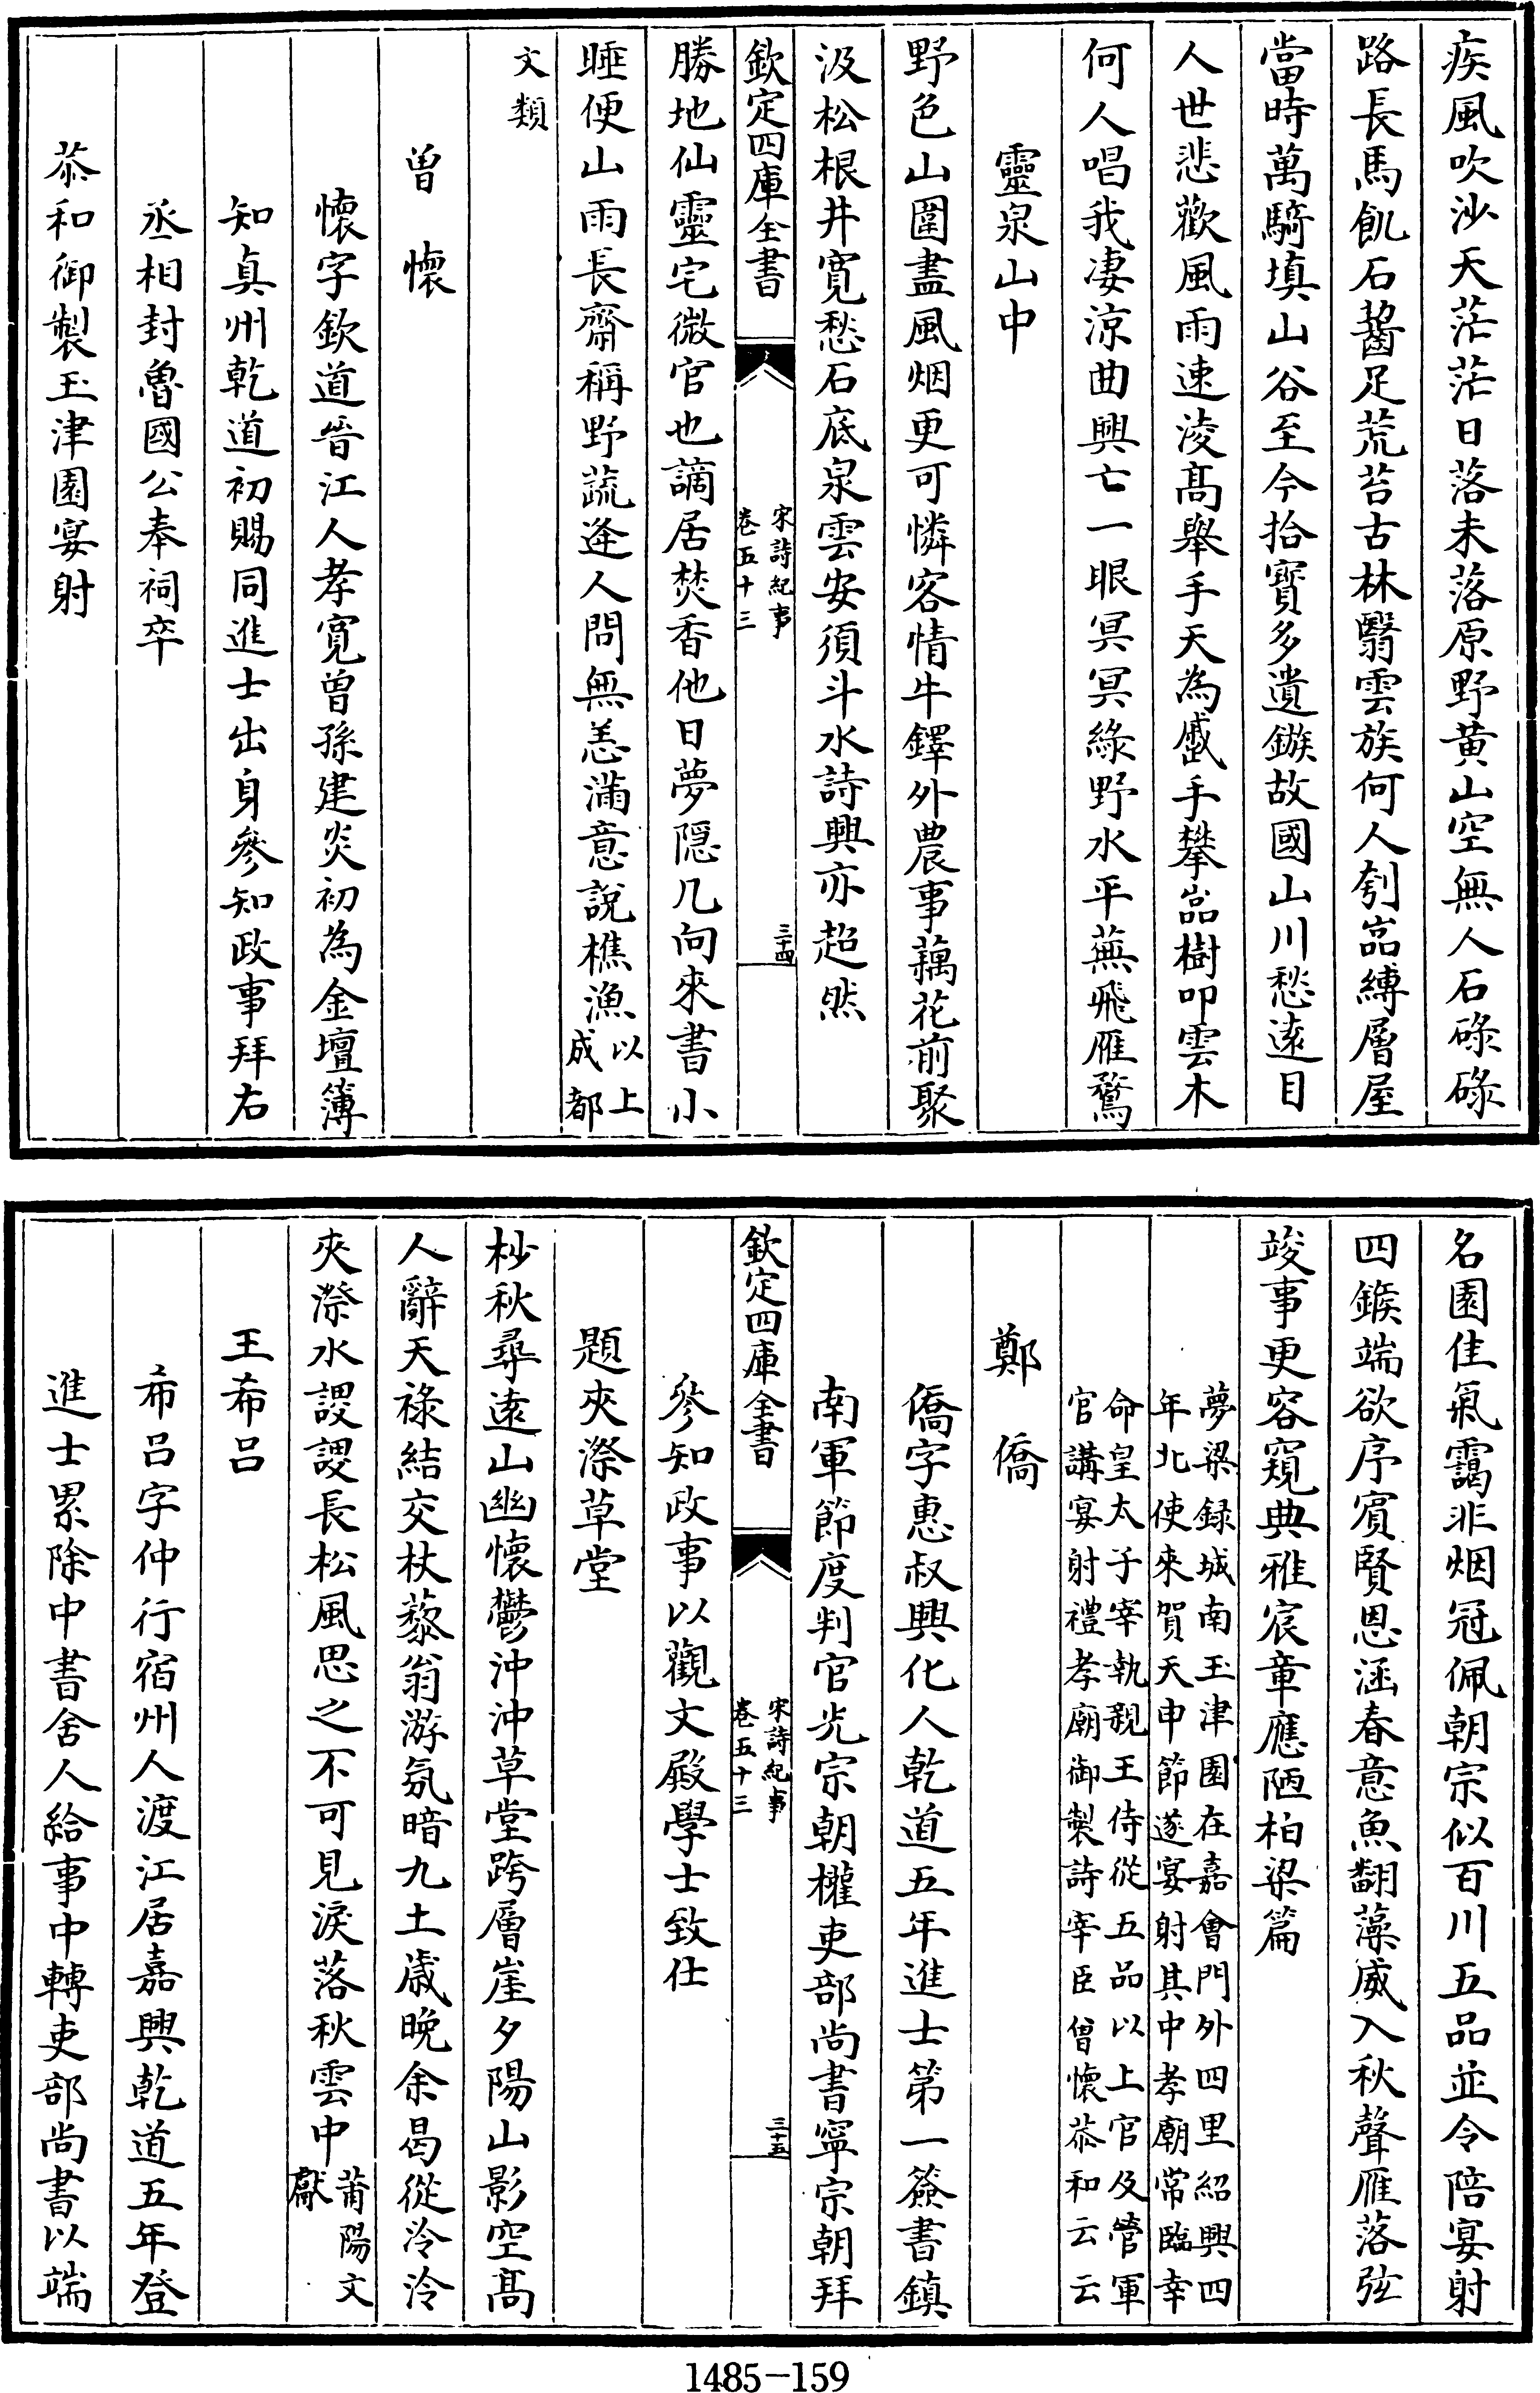 疾風吹沙天茫茫日落未落原野黄山空無人石碌碌
路長馬飢石齧足荒苔古林翳雲族何人刳嵓縛層屋
當時萬騎填山谷至今拾寳多遺鏃故國山川愁遠目
人世悲歡風雨速淩髙舉手天為慼手攀嵓樹叩雲木
何人唱我凄涼曲興亡一眼冥冥綠野水平蕪飛雁鶩
靈泉山中
野色山圍盡風烟更可憐客情牛鐸外農事藕花前聚
汲松根井寛愁石底泉雲安須斗水詩興亦超然
欽定四庫全書
宋詩紀事
卷五十三
三十四
勝地仙靈宅微官也謫居焚香他日夢隠几向來書小
睡便山雨長齋稱野蔬逢人問無恙滿意説樵漁以上成都
文類
曾懷
懷字欽道晉江人孝寛曾孫建炎初為金壇簿
知真州乾道初賜同進士出身參知政事拜右
丞相封魯國公奉祠卒
恭和御製玉津園宴射
名園佳氣靄非烟冠佩朝宗似百川五品並令陪宴射
四鍭端欲序賓賢恩涵春意魚翻藻威入秋聲雁落弦
竣事更容窺典雅宸章應陋柏梁篇
夢梁録城南玉津園在嘉會門外四里紹興四
年北使來賀天申節遂宴射其中孝廟常臨幸
命皇太子宰執親王侍從五品以上官及管軍
官講宴射禮孝廟御製詩宰臣曾懷恭和云云
鄭僑
僑字惠叔興化人乾道五年進士第一簽書鎮
南軍節度判官光宗朝權吏部尚書寧宗朝拜
欽定四庫全書
宋詩紀事
卷五十三
三十五
參知政事以觀文殿學士致仕
題夾漈草堂
杪秋尋遠山幽懷鬱沖沖草堂跨層崖夕陽山影空髙
人辭天祿結交杖藜翁游氛暗九土歲晚余曷從泠泠
夾漈水謖謖長松風思之不可見淚落秋雲中莆陽文獻
王希吕
希吕字仲行宿州人渡江居嘉興乾道五年登
進士累除中書舍人給事中轉吏部尚書以端
1485-159